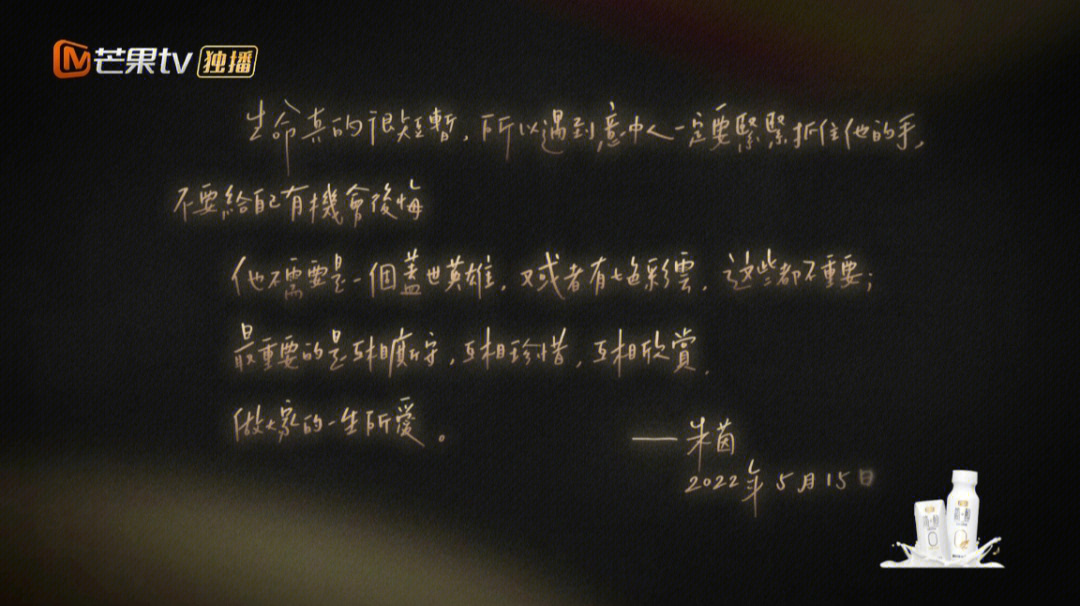 芒果tv 独播
生命真的很短暫，所以遇到意中人一定要緊緊抓住他的手，
不要給自己有機會後悔
他不需要是一個蓋世英雄，又或者有七色彩雲，这些都不重要；
最重要的是互相廝守，互相珍惜，互相欣賞．
做大家的一生所愛。
——朱茵
2022年5月15日
0
0